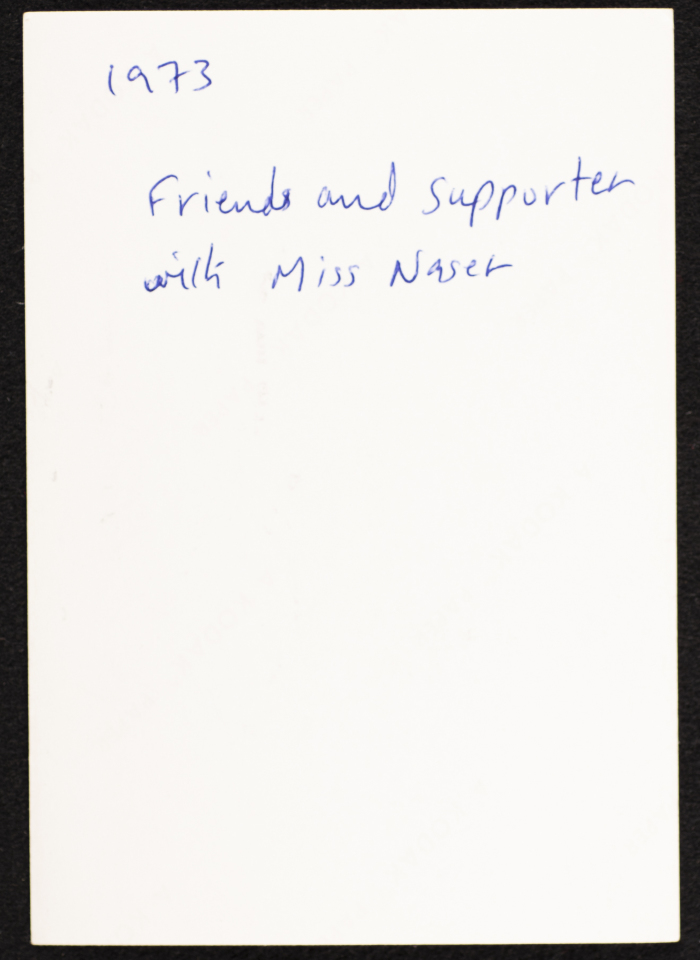 1973
Friends and Supporter
with Miss Naser